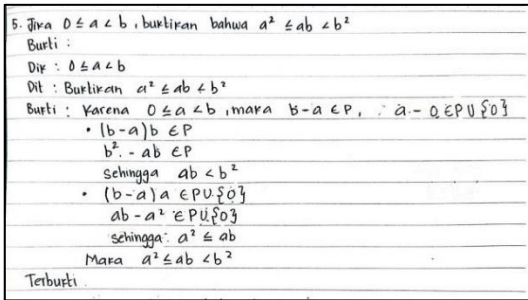 5. Jika 0 ≤ a < b, buktikan bahwa a² ≤ ab < b²
Bukti :
Dik : 0 ≤ a < b
Dit : Buktikan a² ≤ ab < b²
Bukti : Karena 0 ≤ a < b, maka b-a ∈ P, a - 0 ∈ P ∪ {0}
• (b-a)b ∈ P
b² - ab ∈ P
sehingga ab < b²
• (b-a)a ∈ P ∪ {0}
ab - a² ∈ P ∪ {0}
sehingga a² ≤ ab
Maka a² ≤ ab < b²
Terbukti.